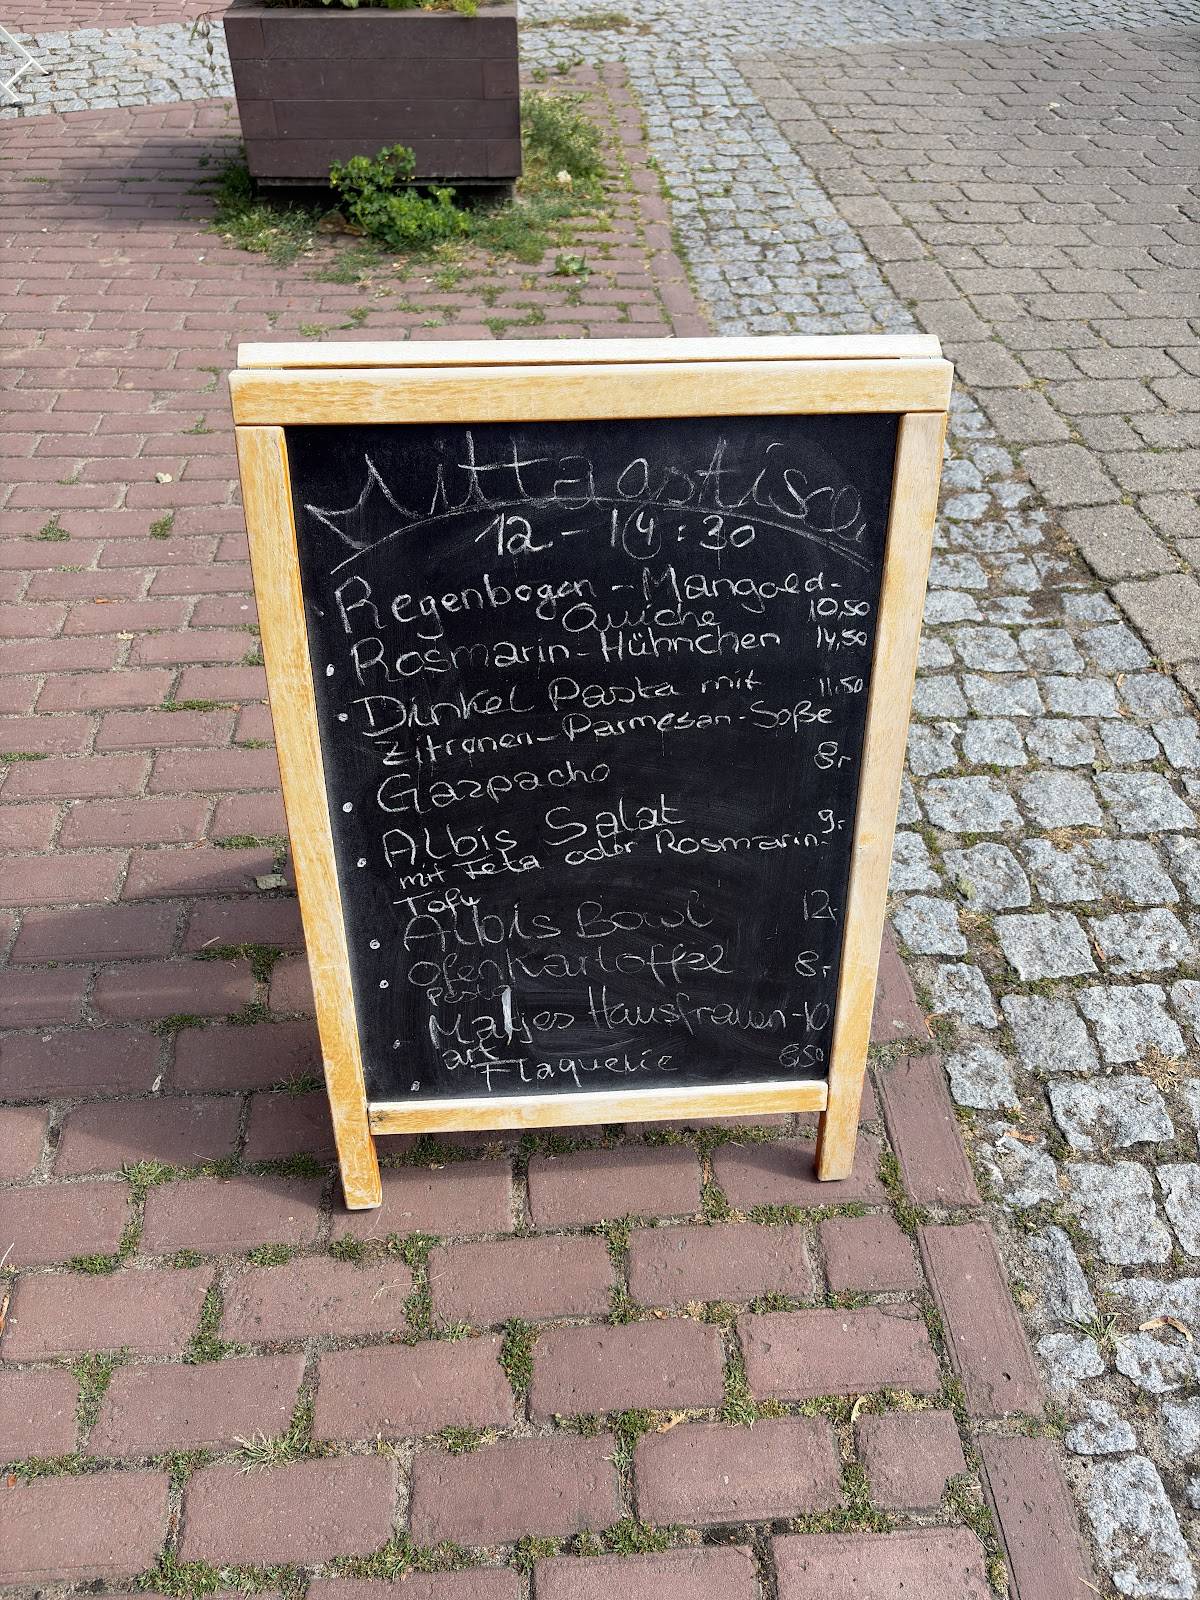 Mittagstisch
12 - 14:30
Regenbogen - Mangold-
Quiche 10,50
Rosmarin - Hühnchen 14,50
Dinkel Pasta mit 11.50
Zitronen - Parmesan - Soße
Gazpacho 8,-
Albis Salat 9,-
mit Feta oder Rosmarin-
Tofu
Albis Bowl 12,-
Ofenkartoffel 8,-
Pesto
Matjes Hausfrauen - 10
art
Flaquelie 8,50